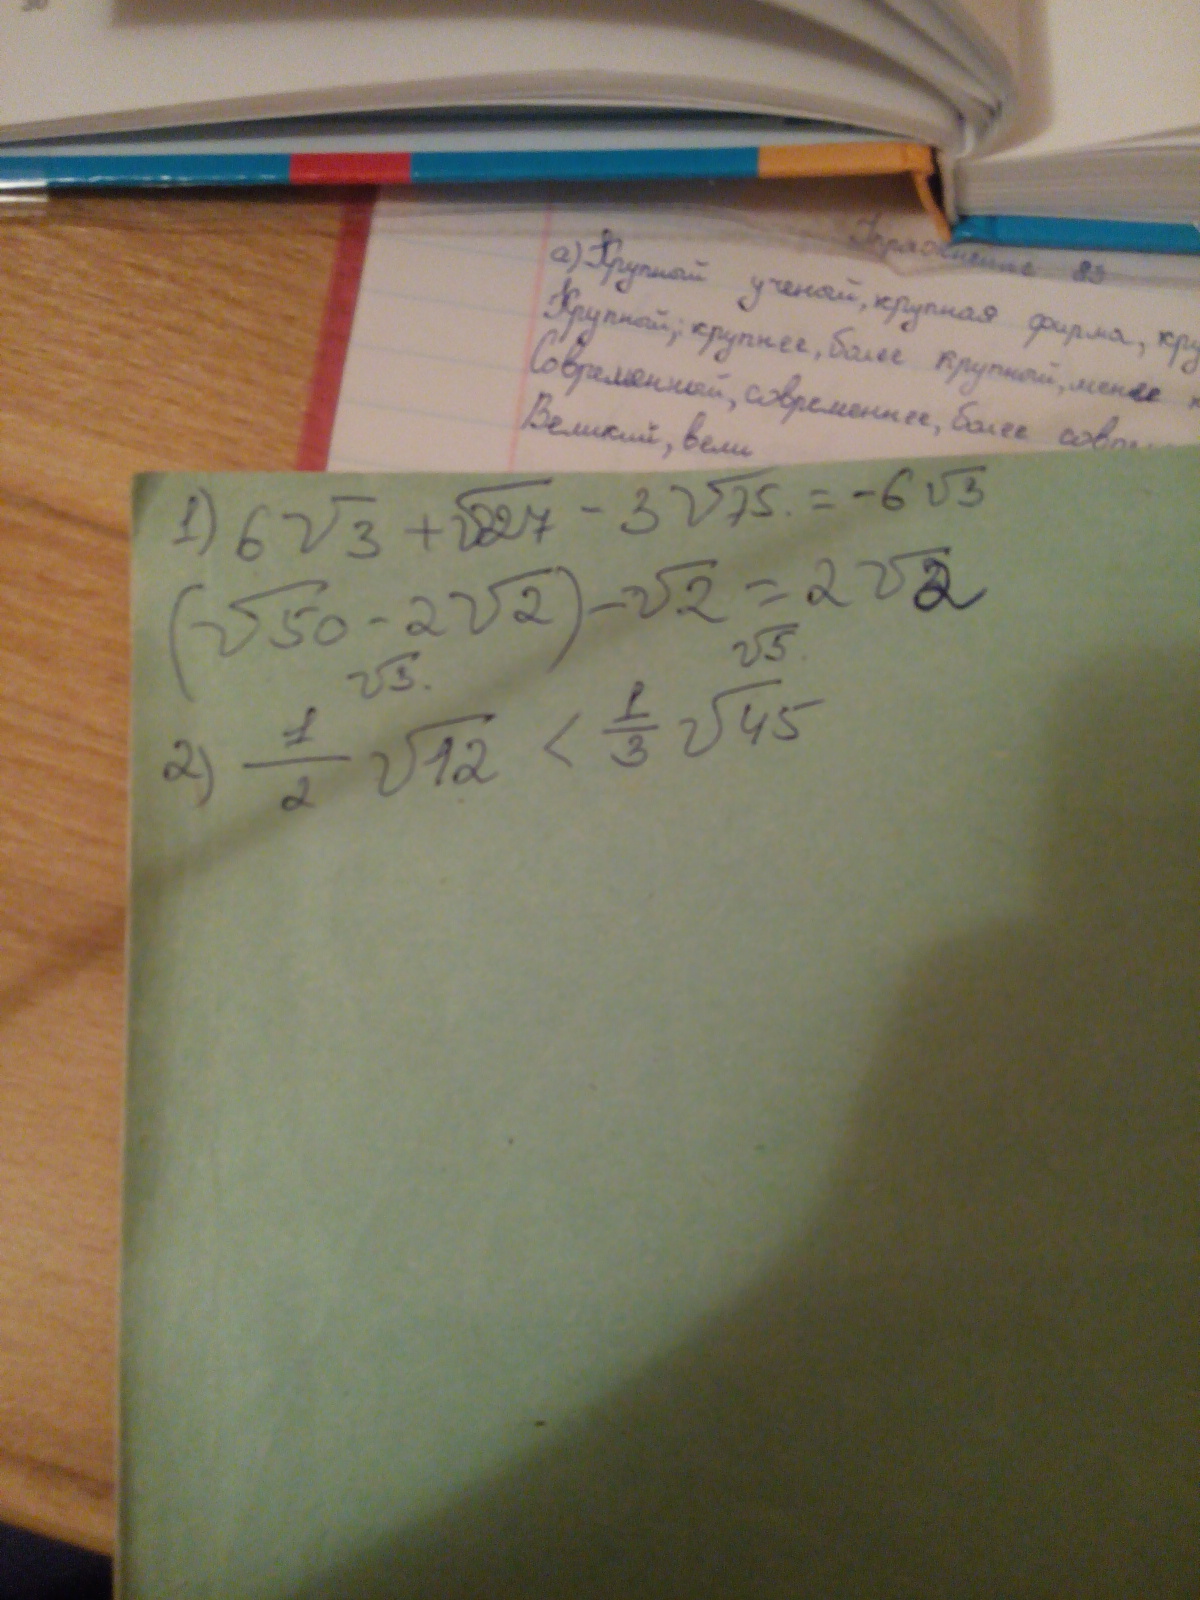 Упражнение 83
а) Крупный ученый, крупная фирма,
Крупный; крупнее, более крупный, менее
Современный, современнее, более
Великий, вели
1) 6√3 + √27 - 3√75. = -6√3
(√50 - 2√2) - √2 = 2√2
√3. √5.
2) 1/2 √12 < 1/3 √45